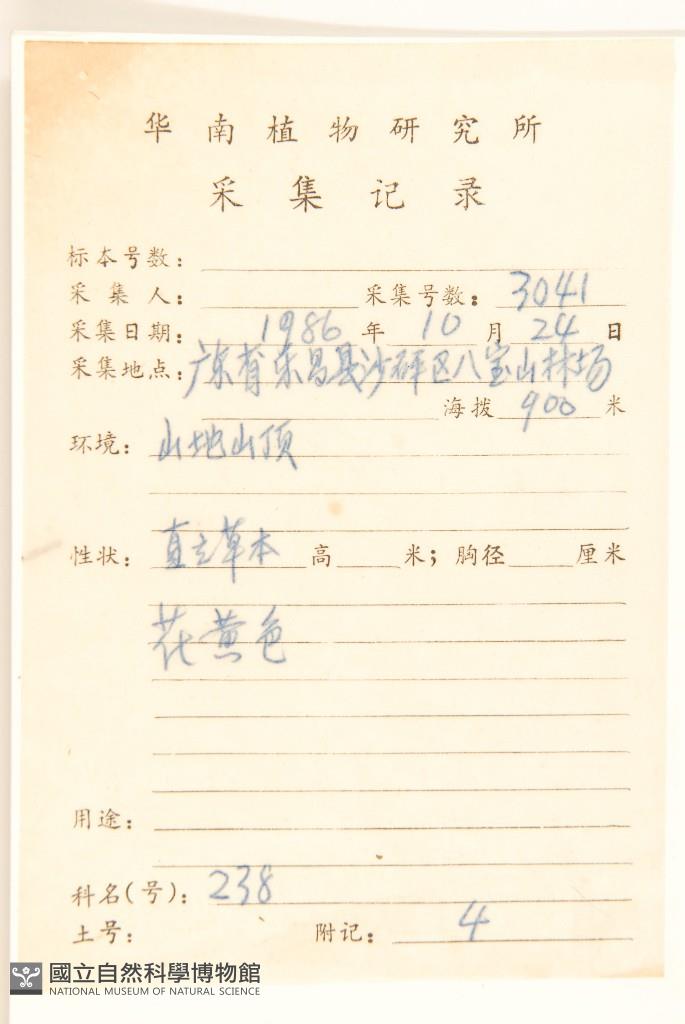 华南植物研究所
采集记录
标本号数:
采集人: 采集号数: 3041
采集日期: 1986 年 10 月 24 日
采集地点: 广东省乐昌县沙坪区八宝山林场
海拨 900 米
环境: 山地山顶
性状: 直立草本 高 米; 胸径 厘米
花黄色
用途:
科名(号): 238
土号: 附记: 4
國立自然科學博物館
NATIONAL MUSEUM OF NATURAL SCIENCE